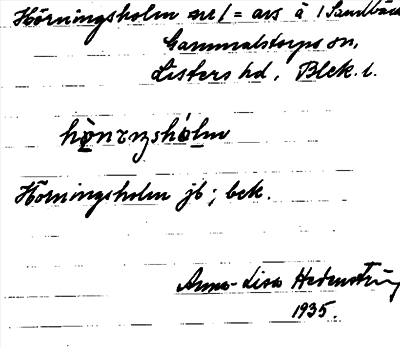 Hörningsholm nr 1 = ars å 1 Sandbäck
Gammalstorps sn,
Listers hd, Blek. l.
Hörningsholm jb; bek.
Anna-Lisa Hedenström
1935.